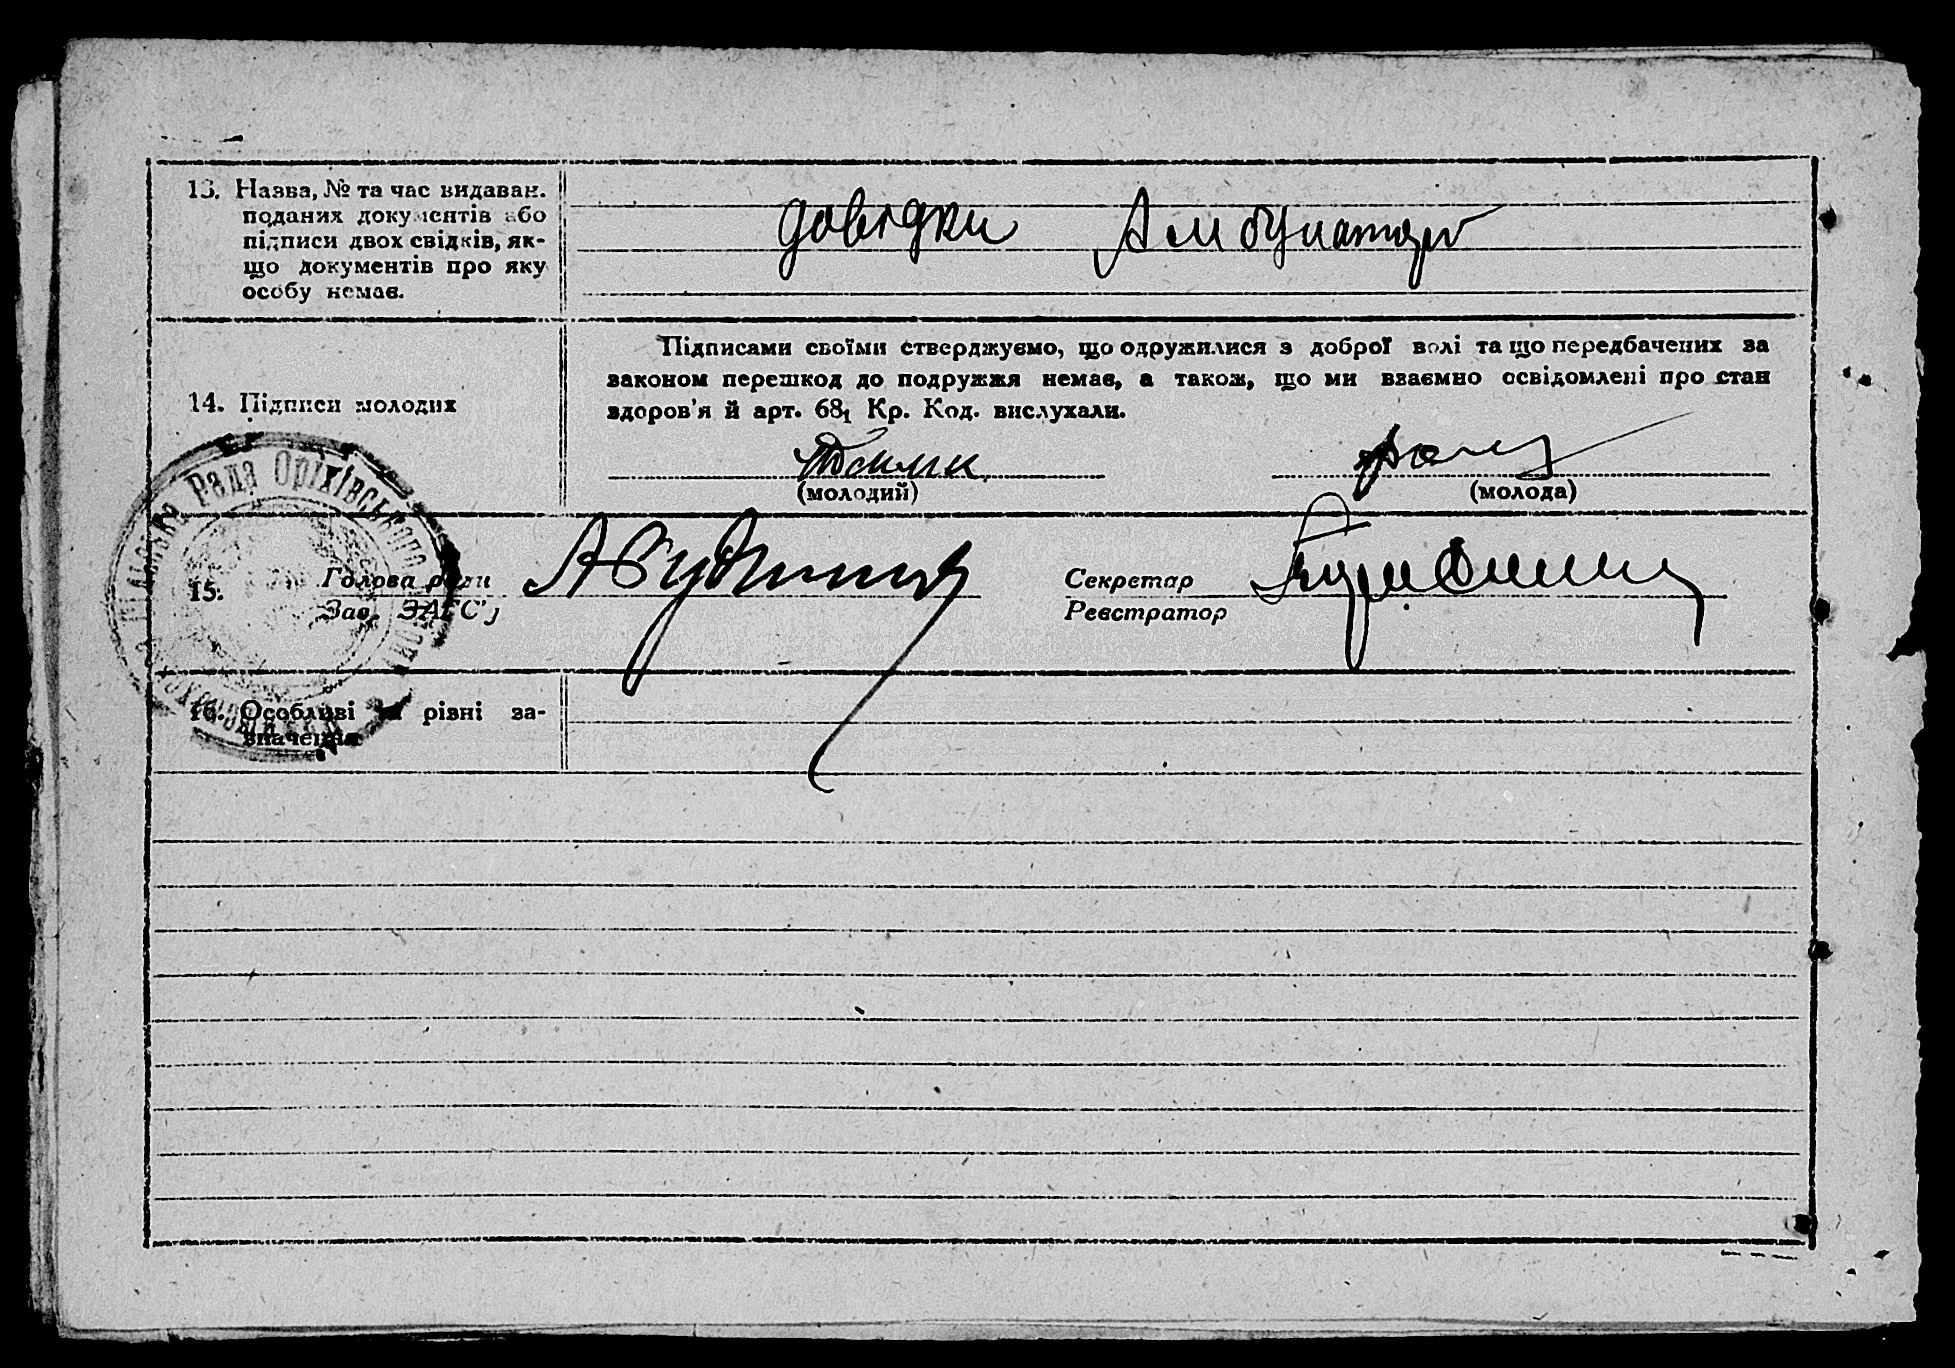 13. Назва, № та час видаван.
поданих документів або
підписи двох свідків, як-
що документів про яку
особу немає.
довідки Амбулаторії
Підписами своїми стверджуємо, що одружилися з доброї волі та що передбачених за
законом перешкод до подружжя немає, а також, що ми взаємно освідомлені про стан
здоров'я й арт. 68₁ Кр. Код. вислухали.
14. Підписи молодих
(молодий)
(молода)
рада Оріхівського
15.
Голова ради
Зав. ЗАГС'у
Секретар
Реєстратор
16. Особливі та рівні за-
значення